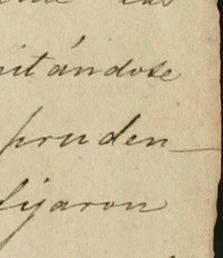 itándose
pruden_
fijaron